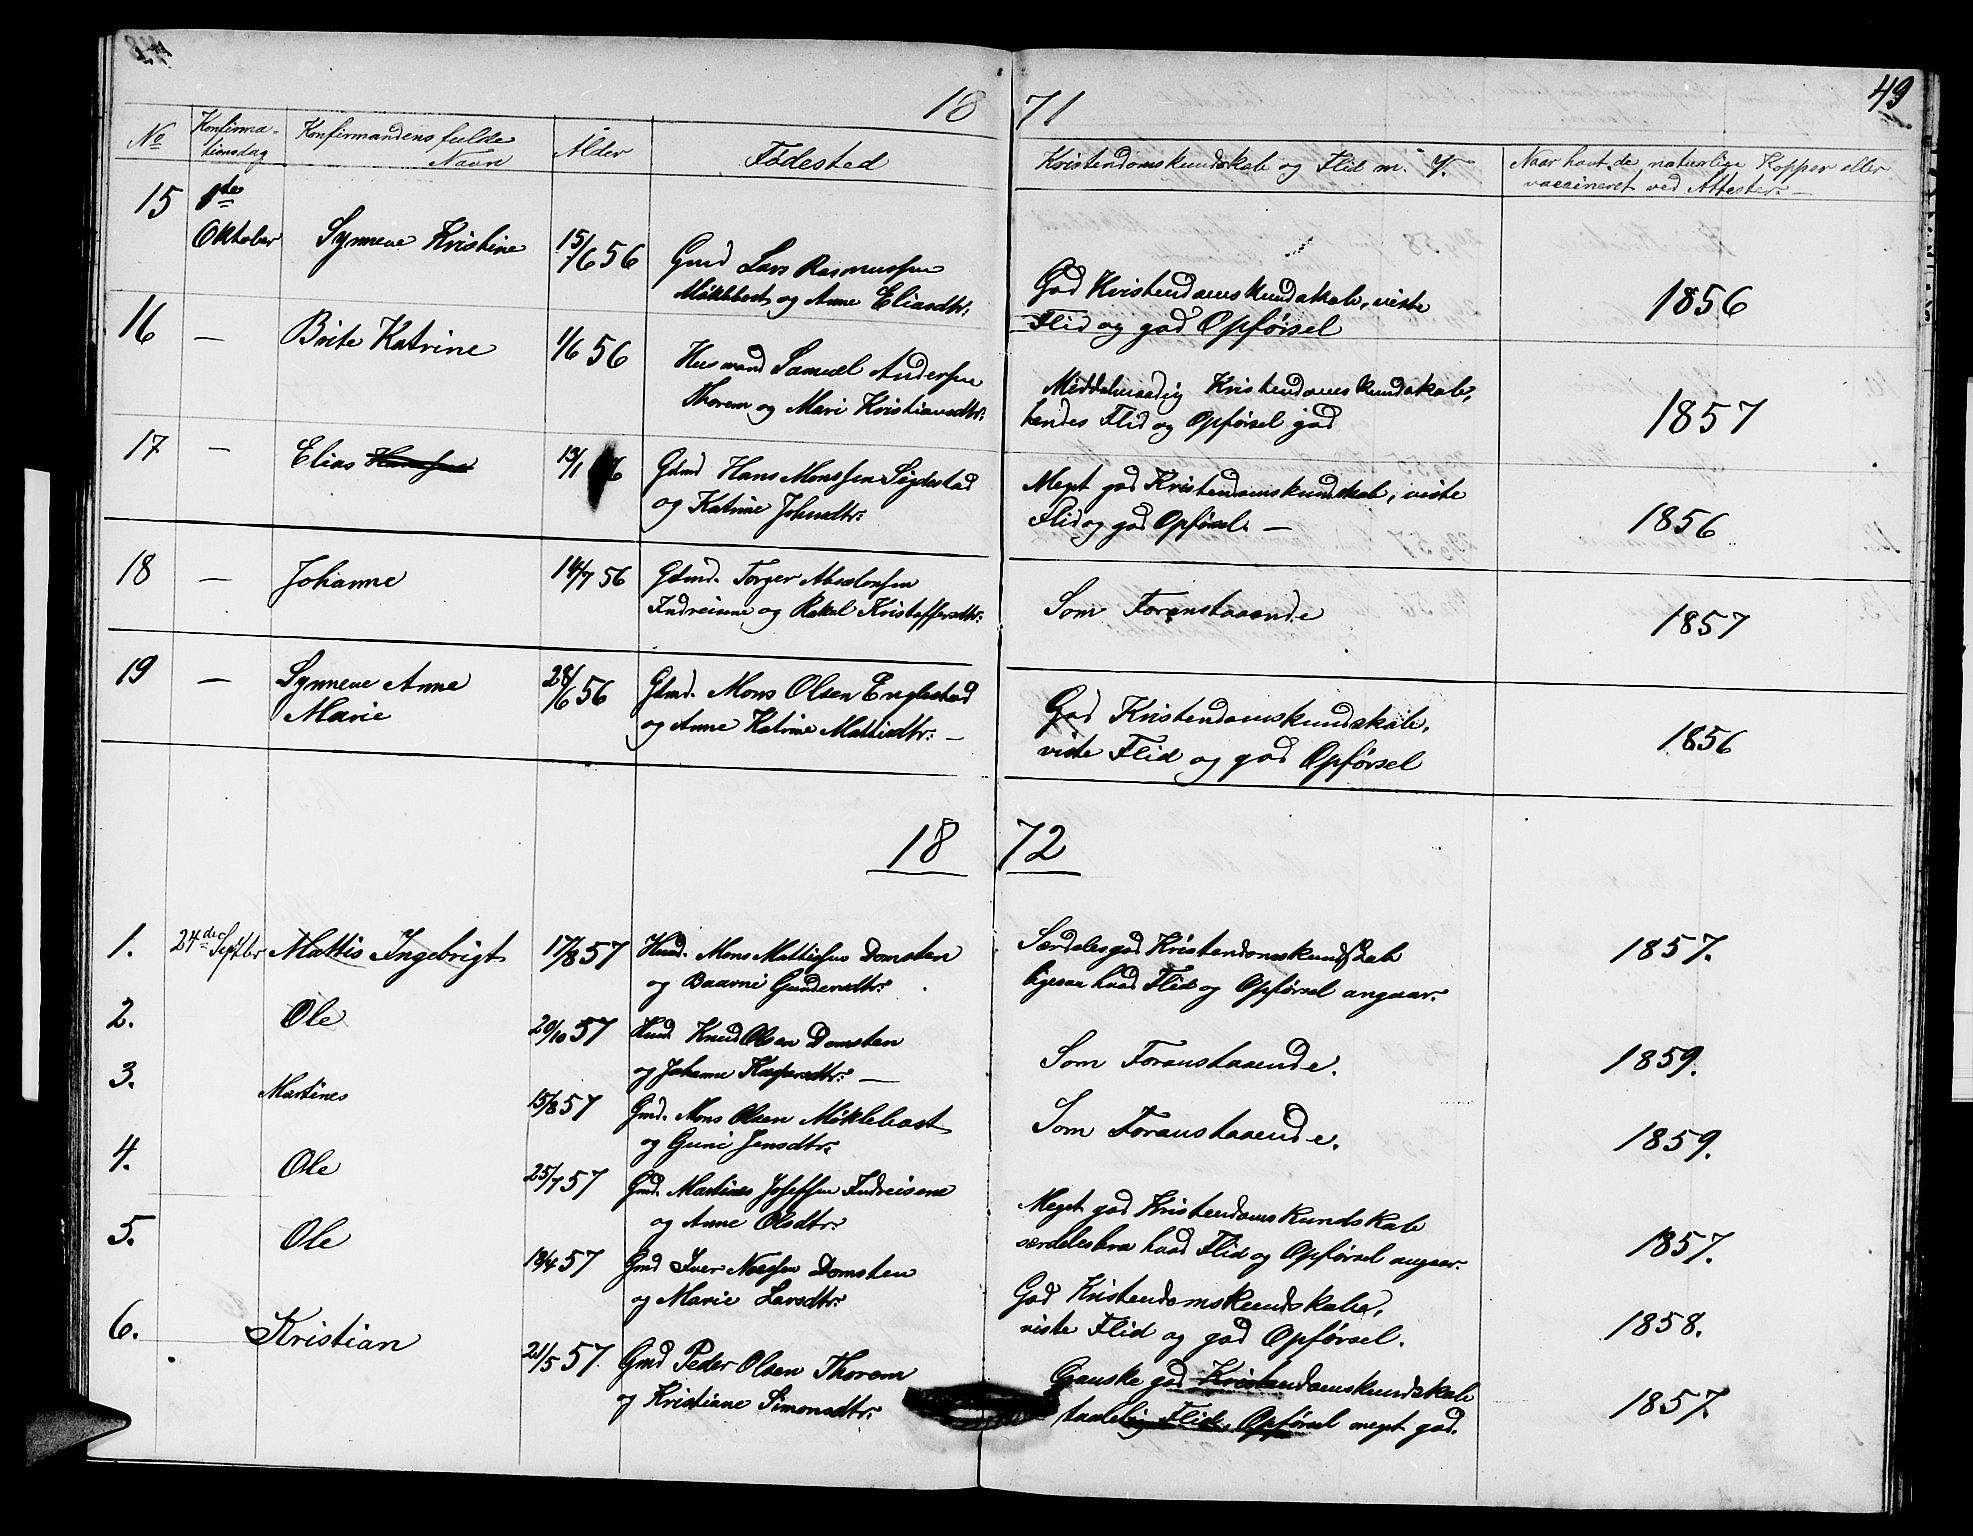 49
18 71
No Konfirma- Konfirmandens fulde Alder Fødested Kristendomskundskab og Flid m. v. Naar havt de naturlige Kopper eller
tionsdag Navn vaccineret ved Attester.
15 1ste
Oktober Synneve Kristine 15/6 56 Gmd Lars Rasmussen
Møklebost og Anne Eliasdtr. God Kristendomskundskab, viste 1856
Flid og god Opførsel
16 — Brite Katrine 1/6 56 Husmand Samuel Andersen
Thorem og Mari Kristiansdtr: Middelmaadig Kristendomskundskab, 1857
hendes Flid og Opførsel god
17 — Elias 13/1 6 Gdmd Hans Monssen Sigdestad Meget god Kristendomskundskab, viste 1856
og Katrine Johnsdtr: Flid og god Opførsel. —
18 — Johanne 14/7 56 Gdmd. Torger Absalonsen
Indreiene og Rakel Kristoffersdtr: Som Foranstaaende 1857
19 — Synneve Anne 28/6 56 Gdmd. Mons Olsen Englestad God Kristendomskundskab, 1856
Marie og Anne Katrine Mattisdtr: — viste Flid og god Opførsel
18 72
1. 24de Septbr Mattis Ingebrigt 17/8 57 Husd. Mons Mattissen Domsten Særdeles god Kristendomskundskab 1857.
og Baarni Gundersdtr: ligesaa hvad Flid og Opførsel angaar.
2. Ole 20/10 57 Husd Knud Olsen Domsten Som Foranstaaende. 1859.
og Johanne Kaspersdtr: —
3. Martines 15/8 57 Gmd. Mons Olsen Møklebost Som Foranstaaende. 1859.
og Guni Jensdtr:
4. Ole 25/7 57 Gmd. Martines Josefsen Indreiene Meget god Kristendomskundskab 1857.
og Anne Olsdtr: særdeles bra hvad Flid og Opførsel angaar.
5. Ole 19/4 57 Gmd Iver Domsten God Kristendomskundskab, 1858.
og Marie Larsdtr: viste Flid og god Opførsel.
6. Kristian 21/5 57. Gmd Peder Olsen Thorem Ganske god Kristendomskundskab 1857.
og Kristiane Simonsdtr: taalelig Flid, Opførsel meget god.